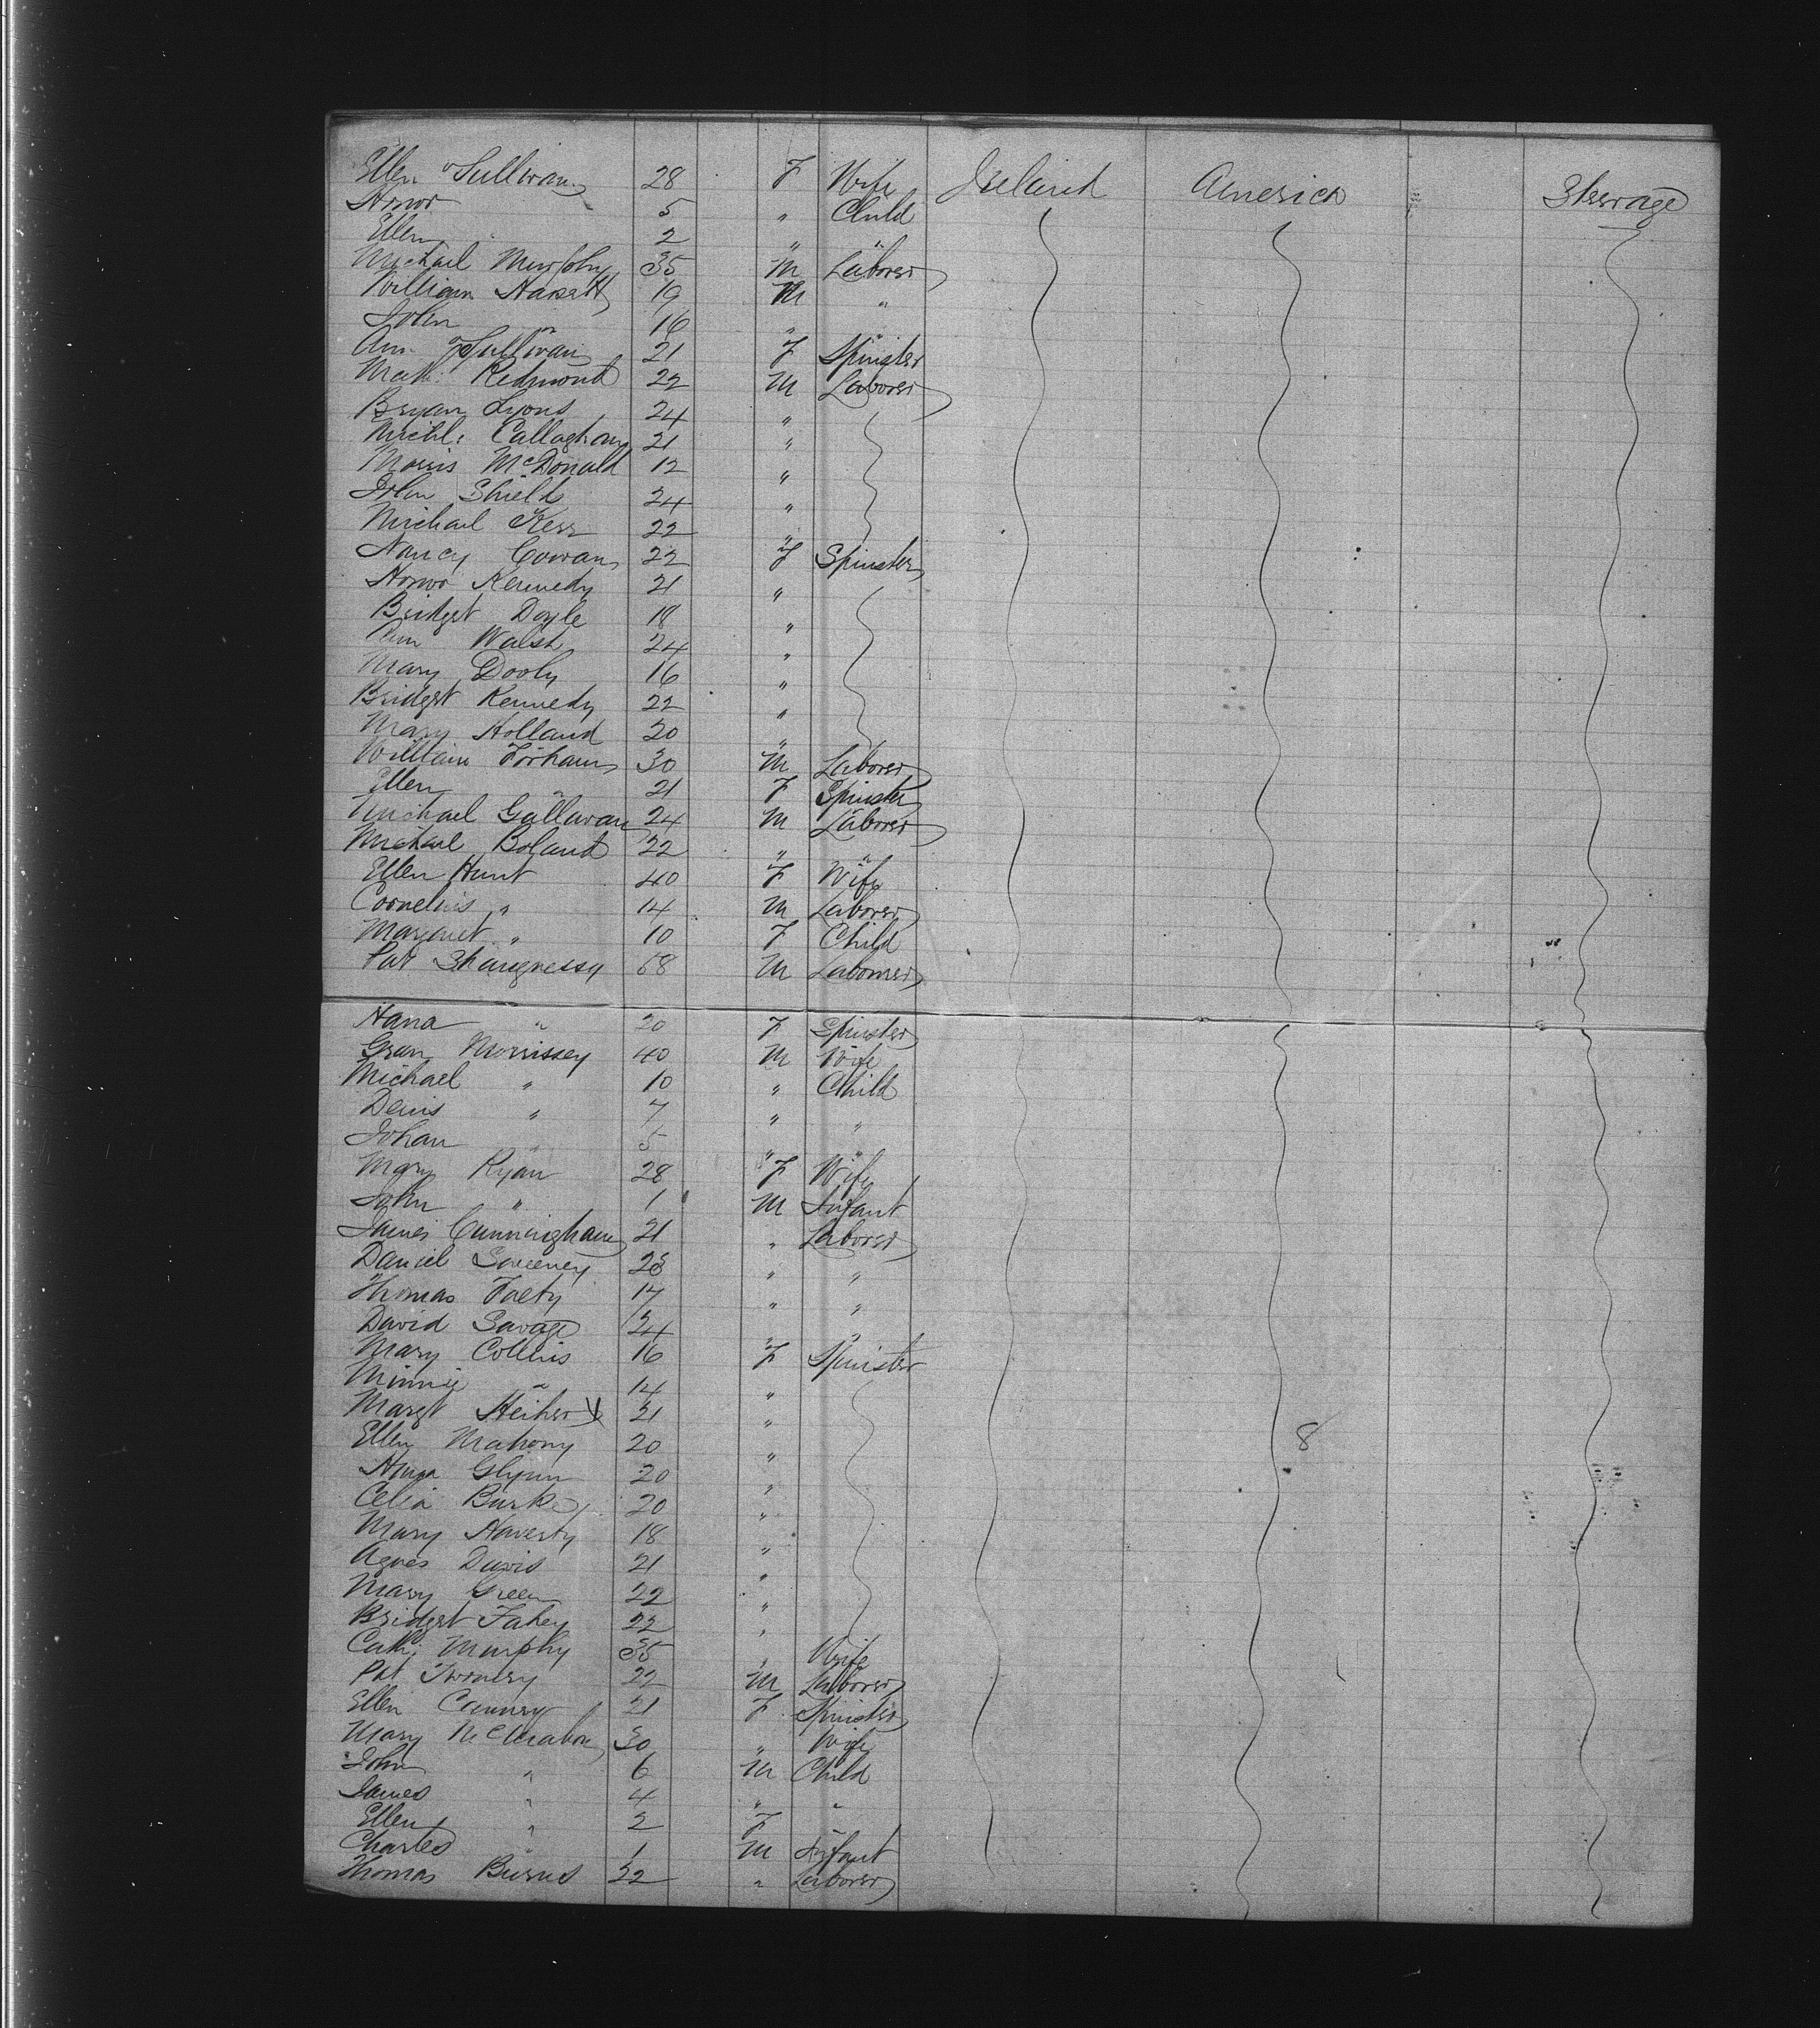 Ellen Sullivan 28 F Wife Ireland America Steerage
Honor 5 " Child
Ellen 2 " "
Michael Murphy 35 M Laborer
William 19 M "
John " 16 " "
Ann Sullivan 21 F Spinster
Math: Redmond 22 M Laborer
Bryan Lyons 24 "
Michl: Callaghan 21 "
Morris McDonald 12 "
John Shield 24 "
Michael Kerr 22 "
Nancy Cowan 22 F Spinster
Honor Kennedy 21 "
Bridget Doyle 18 "
Ann Walsh 24 "
Mary Dooly 16 "
Bridget Kennedy 22 "
Mary Holland 20 "
William Forhan 30 M Laborer
Ellen " 21 F Spinster
Michael Gallavan 24 M Laborer
Michael Boland 22 " "
Ellen Hunt 40 F Wife
Cornelius " 14 M Laborer
Margaret " 10 F Child
Pat Shaugnessy 58 M Labourer
Hana " 20 F Spinster
Morrissey 40 M Wife
Michael " 10 " Child
Denis " 7 " "
Johan " 5 " "
Mary Ryan 28 F Wife
John " 1 M Infant
James Cunningham 21 " Laborer
Daniel Sweeney 23 " "
Thomas 17 " "
David Savage 24 " "
Mary Collins 16 F Spinster
Minnie " 14 "
Margt 21 "
Ellen Mahony 20 " 8
Glynn 20 "
Celia Burke 20 "
Mary Haverty 18 "
Agnes Davis 21 "
Mary Green 22 "
Bridget Fahey 22 "
Cath: Murphy 35 " Wife
Pat Twomey 22 M Laborer
Ellen 21 F Spinster
Mary 30 " Wife
John " 6 M Child
James " 4 " "
Ellen " 2 F "
Charles " 1 M Infant
Thomas Burns 22 " Laborer